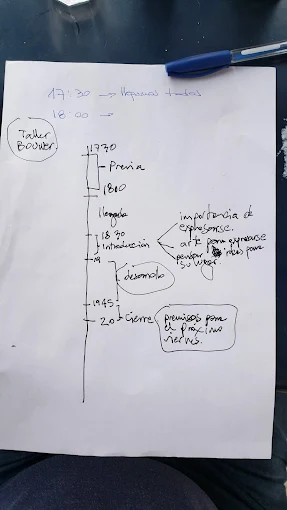 17:30 → llegamos todos
18:00 →
Taller
Bouwer.
1730
Previa
1800
llegada
18 30
Introducción
importancia de
expresarse.
arte para expresarse
pensar ideas para
su lugar.
19
desarrollo
1945
20 Cierre
premisas para
el próximo
viernes.